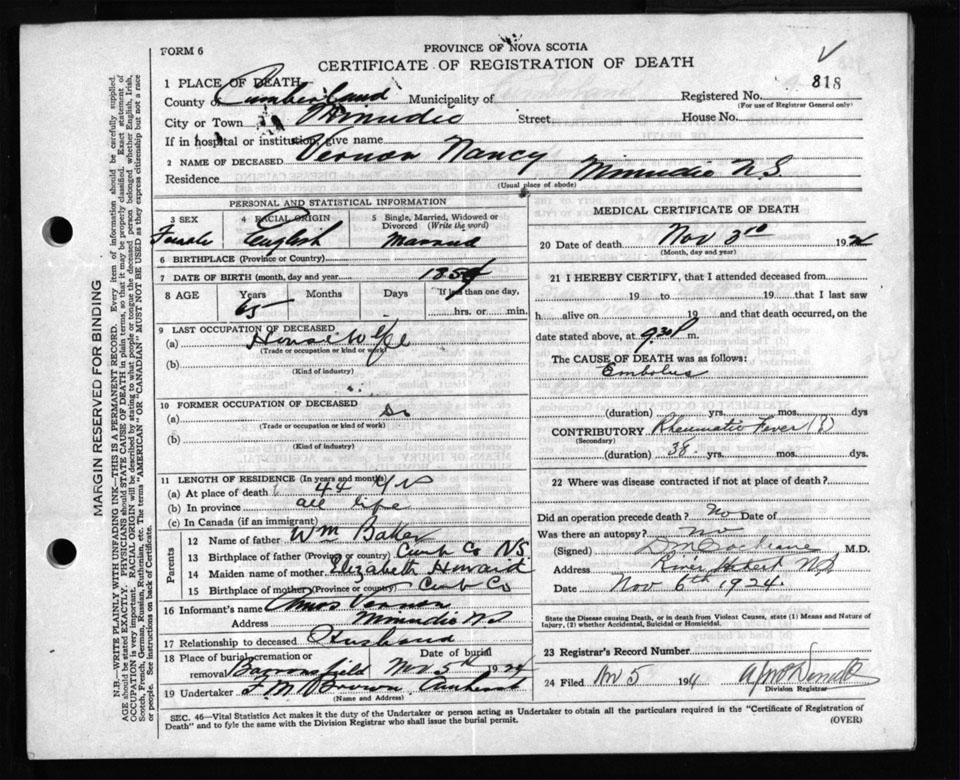 FORM 6
PROVINCE OF NOVA SCOTIA
CERTIFICATE OF REGISTRATION OF DEATH
1 PLACE OF DEATH
County of Cumberland Municipality of Registered No. 818
(For use of Registrar General only)
City or Town Minudie Street House No.
If in hospital or institution, give name
2 NAME OF DECEASED Vernon Nancy
Residence Minudie N.S.
(Usual place of abode)
PERSONAL AND STATISTICAL INFORMATION
3 SEX Female
4 RACIAL ORIGIN English
5 Single, Married, Widowed or Divorced (Write the word) Married
6 BIRTHPLACE (Province or Country)
7 DATE OF BIRTH (month, day and year)
8 AGE Years 65 Months Days If less than one day, hrs. or min.
9 LAST OCCUPATION OF DECEASED
(a) Housewife
(Trade or occupation or kind of work)
(b)
(Kind of industry)
10 FORMER OCCUPATION OF DECEASED
(a)
(Trade or occupation or kind of work)
(b)
(Kind of industry)
11 LENGTH OF RESIDENCE (In years and months)
(a) At place of death 44 yrs
(b) In province all life
(c) In Canada (if an immigrant)
Parents
12 Name of father Wm Baker
13 Birthplace of father (Province or country) Cumb Co NS.
14 Maiden name of mother Elizabeth Howard
15 Birthplace of mother (Province or country) Cumb Co
16 Informant's name Amos Vernon
Address Minudie NS
17 Relationship to deceased Husband
18 Place of burial, cremation or removal Date of burial Nov 5th 1924
19 Undertaker Brown Amherst
(Name and Address)
MEDICAL CERTIFICATE OF DEATH
20 Date of death Nov 3rd 1924
(Month, day and year)
21 I HEREBY CERTIFY, that I attended deceased from
19 to 19 that I last saw
h alive on 19 and that death occurred, on the
date stated above, at 9.30 P m.
The CAUSE OF DEATH was as follows:
Embolus
(duration) yrs. mos. dys
CONTRIBUTORY Rheumatic Fever (?)
(Secondary)
(duration) 38 yrs. mos. dys.
22 Where was disease contracted if not at place of death?
Did an operation precede death? No Date of
Was there an autopsy? No
(Signed) M.D.
Address River Hebert NS
Date Nov 6th 1924.
State the Disease causing Death, or in death from Violent Causes, state (1) Means and Nature of Injury, (2) whether Accidental, Suicidal or Homicidal.
23 Registrar's Record Number
24 Filed Nov 5 191
Division Registrar
SEC. 46—Vital Statistics Act makes it the duty of the Undertaker or person acting as Undertaker to obtain all the particulars required in the "Certificate of Registration of
Death" and to fyle the same with the Division Registrar who shall issue the burial permit.
(OVER)
MARGIN RESERVED FOR BINDING
N.B.—WRITE PLAINLY WITH UNFADING INK—THIS IS A PERMANENT RECORD. Every item of information should be carefully supplied.
AGE should be stated EXACTLY. PHYSICIANS should STATE CAUSE OF DEATH in plain terms, so that it may be properly classified. Exact statement of
OCCUPATION is very important. RACIAL ORIGIN will be described by stating to what people or tongue the deceased person, belonged whether English, Irish,
Scotch, French, German, Russian, Ruthenian, etc. The terms "AMERICAN" OR "CANADIAN" MUST NOT BE USED as they express citizenship but not a race
or people. See instructions on back of Certificate.